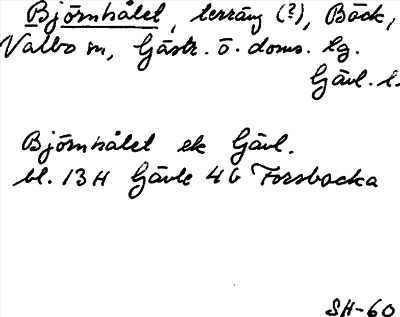 Björnhålet, terräng (?), Bäck,
Valbo sn, Gästr. ö. doms. tg.
Gävl. l.
Björnhålet ek Gävl.
bl. 13H Gävle 4b Forsbacka
SH-60